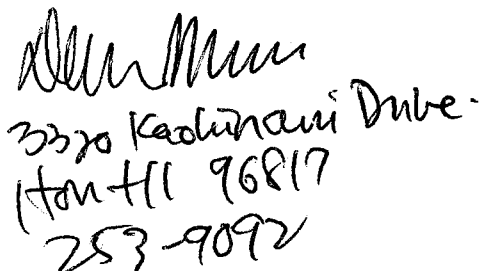 3320 Kaohinani Drive.
Hon HI 96817
253-9092